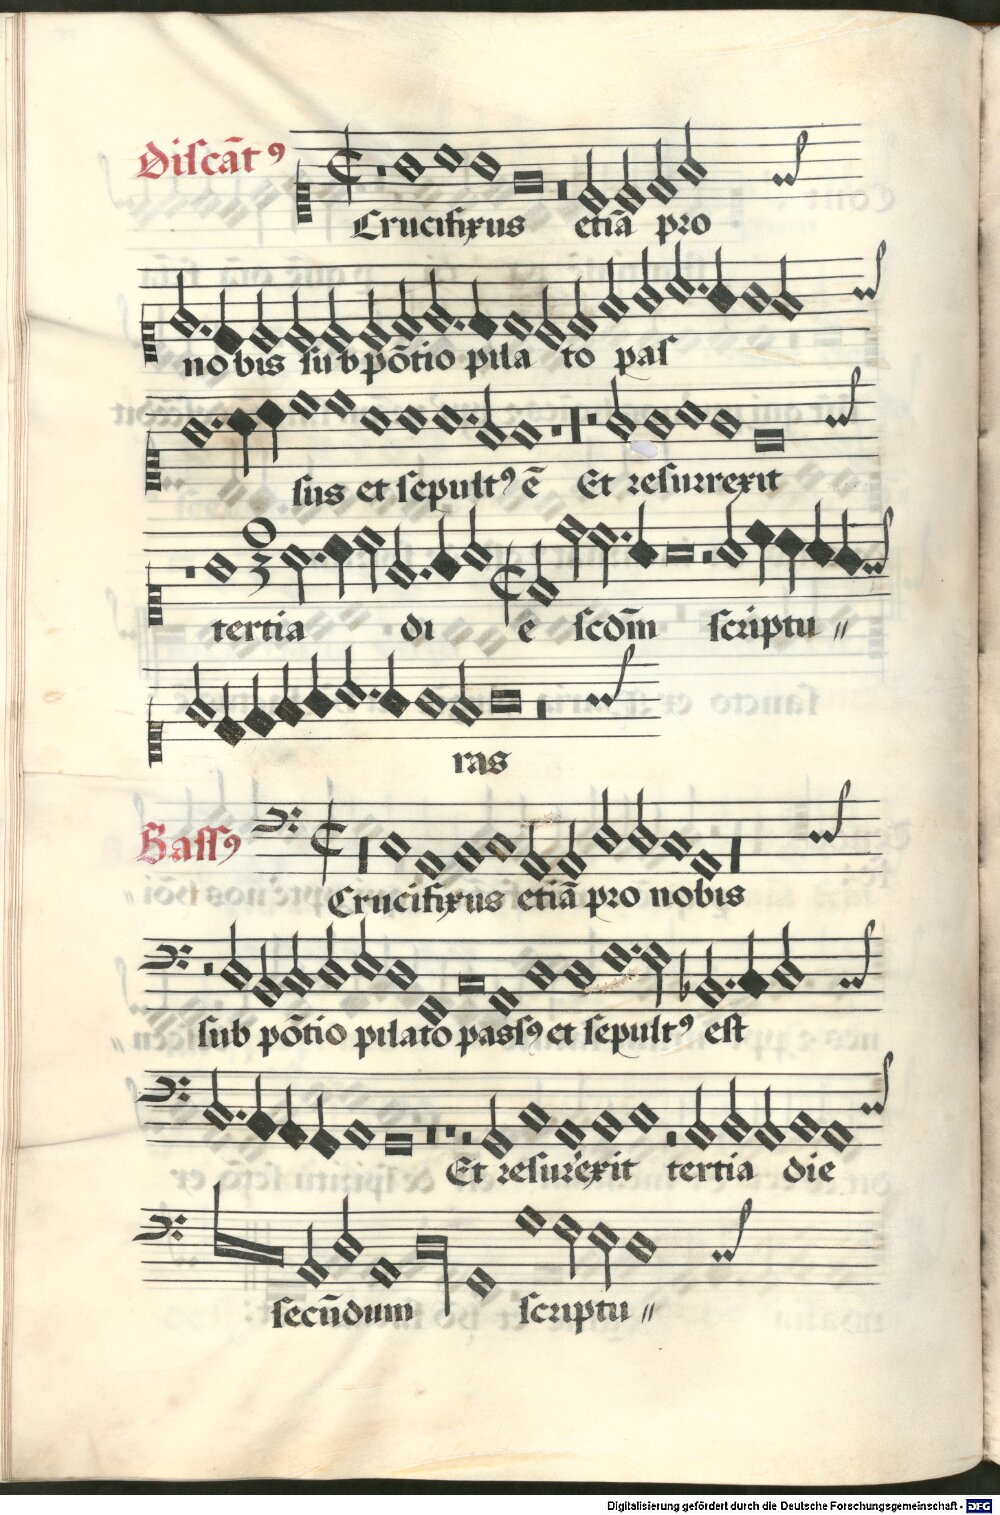 Discãtꝯ
Crucifixus etiã pro
no bis sub põtio pila to pas
sus et sepultꝯ ē Et resurrexit
tertia di e scdm̄ scriptu〃
ras
Bassꝯ
Crucifixus etiã pro nobis
sub põtio pilato passꝯ et sepultꝯ est
Et resurexit tertia die
secũdum scriptu〃
Digitalisierung gefördert durch die Deutsche Forschungsgemeinschaft - DFG